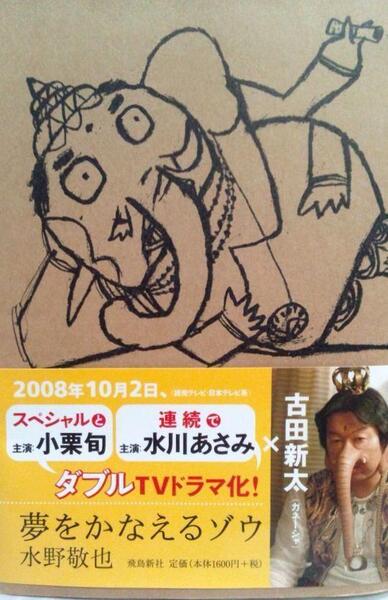 2008年10月2日、(読売テレビ・日本テレビ系)
スペシャルと
主演:小栗旬
連続で
主演:水川あさみ
×
古田新太
(ガネーシャ)
ダブルTVドラマ化!
夢をかなえるゾウ
水野敬也
飛鳥新社 定価(本体1600円+税)